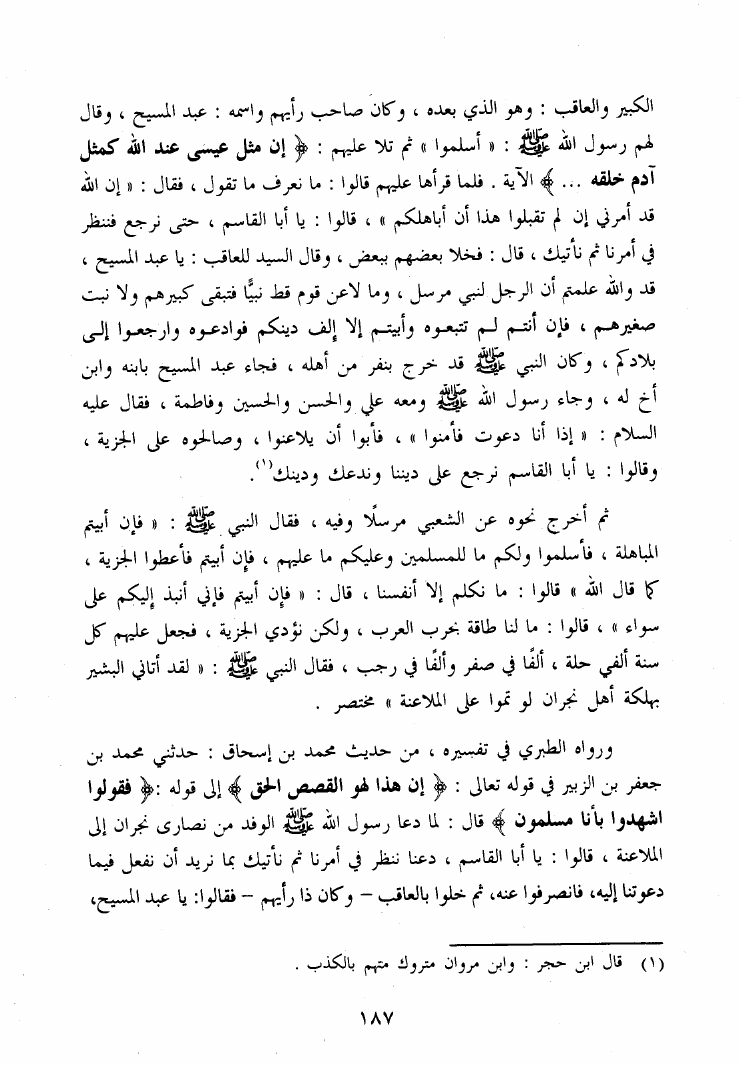 الكبير والعاقب : وهو الذي بعده ، وكان صاحب رأيهم واسمه : عبد المسيح ، وقال
لهم رسول الله ﷺ : « أسلموا » ثم تلا عليهم : ﴿ إن مثل عيسى عند الله كمثل
آدم خلقه ... ﴾ الآية . فلما قرأها عليهم قالوا : ما نعرف ما تقول ، فقال : « إن الله
قد أمرني إن لم تقبلوا هذا أن أباهلكم » ، قالوا : يا أبا القاسم ، حتى نرجع فننظر
في أمرنا ثم نأتيك ، قال : فخلا بعضهم ببعض ، وقال السيد للعاقب : يا عبد المسيح ،
قد والله علمتم أن الرجل لنبي مرسل ، وما لاعن قوم قط نبيًّا فتبقى كبيرهم ولا نبت
صغيرهـم ، فإن أنتـم لـم تتبعـوه وأبيتـم إلا إلف دينكم فوادعـوه وارجعـوا إلـى
بلادكم ، وكان النبي ﷺ قد خرج بنفر من أهله ، فجاء عبد المسيح بابنه وابن
أخ له ، وجاء رسول الله ﷺ ومعه علي والحسن والحسين وفاطمة ، فقال عليه
السلام : « إذا أنا دعوت فأمنوا » ، فأبوا أن يلاعنوا ، وصالحوه على الجزية ،
وقالوا : يا أبا القاسم نرجع على ديننا وندعك ودينك(١).
ثم أخرج نحوه عن الشعبي مرسلًا وفيه ، فقال النبي ﷺ : « فإن أبيتم
المباهلة ، فأسلموا ولكم ما للمسلمين وعليكم ما عليهم ، فإن أبيتم فأعطوا الجزية ،
كما قال الله » قالوا : ما نكلم إلا أنفسنا ، قال : « فإن أبيتم فإني أنبذ إليكم على
سواء » ، قالوا : ما لنا طاقة بحرب العرب ، ولكن نؤدي الجزية ، فجعل عليهم كل
سنة ألفي حلة ، ألفًا في صفر وألفًا في رجب ، فقال النبي ﷺ : « لقد أتاني البشير
بهلكة أهل نجران لو تموا على الملاعنة » مختصر .
ورواه الطبري في تفسيره ، من حديث محمد بن إسحاق : حدثني محمد بن
جعفر بن الزبير في قوله تعالى : ﴿ إن هذا لهو القصص الحق ﴾ إلى قوله :﴿ فقولوا
اشهدوا بأنا مسلمون ﴾ قال : لما دعا رسول الله ﷺ الوفد من نصارى نجران إلى
الملاعنة ، قالوا : يا أبا القاسم ، دعنا ننظر في أمرنا ثم نأتيك بما نريد أن نفعل فيما
دعوتنا إليه، فانصرفوا عنه، ثم خلوا بالعاقب – وكان ذا رأيهم – فقالوا: يا عبد المسيح،
(١) قال ابن حجر : وابن مروان متروك متهم بالكذب .
١٨٧